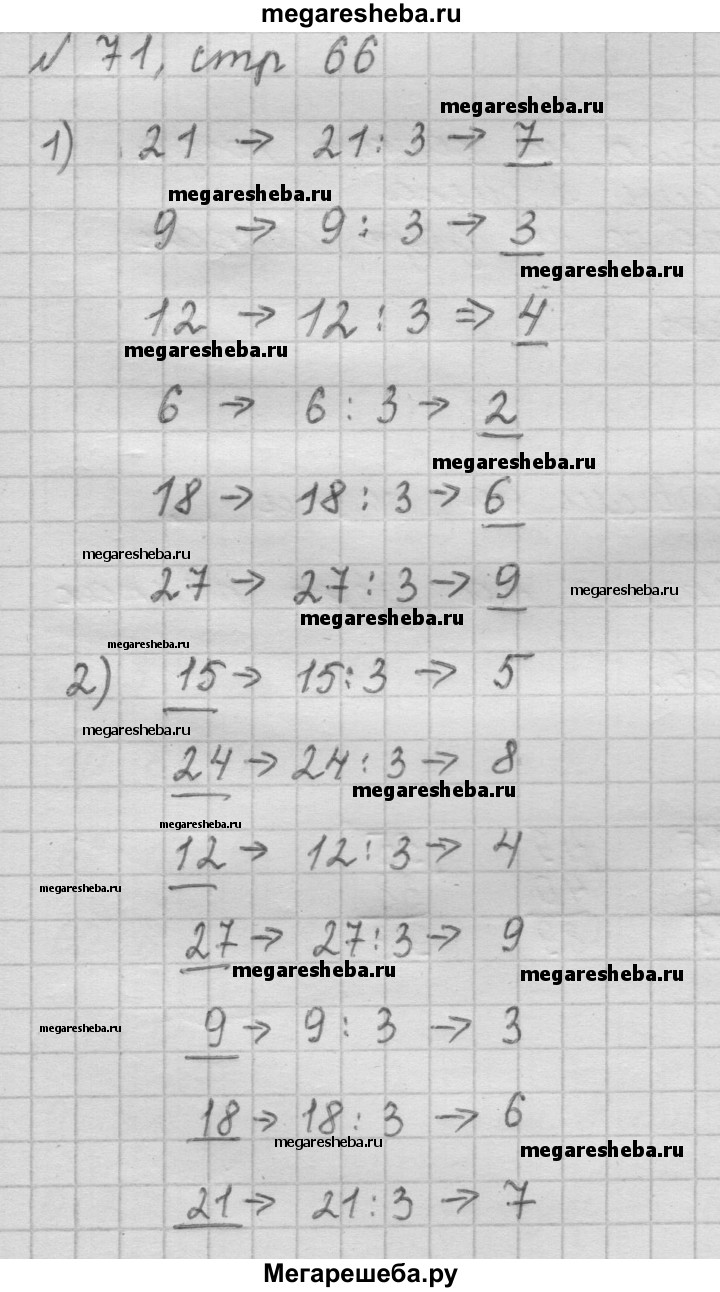 megaresheba.ru
№ 71, стр 66
megaresheba.ru
1) 21 → 21 : 3 → 7
megaresheba.ru
9 → 9 : 3 → 3
megaresheba.ru
12 → 12 : 3 ⇒ 4
megaresheba.ru
6 → 6 : 3 → 2
megaresheba.ru
18 → 18 : 3 → 6
megaresheba.ru
27 → 27 : 3 → 9
megaresheba.ru
megaresheba.ru
megaresheba.ru
2) 15 → 15 : 3 → 5
megaresheba.ru
24 → 24 : 3 → 8
megaresheba.ru
megaresheba.ru
12 → 12 : 3 → 4
megaresheba.ru
27 → 27 : 3 → 9
megaresheba.ru
megaresheba.ru
9 → 9 : 3 → 3
megaresheba.ru
18 → 18 : 3 → 6
megaresheba.ru
megaresheba.ru
21 → 21 : 3 → 7
Мегарешеба.ру